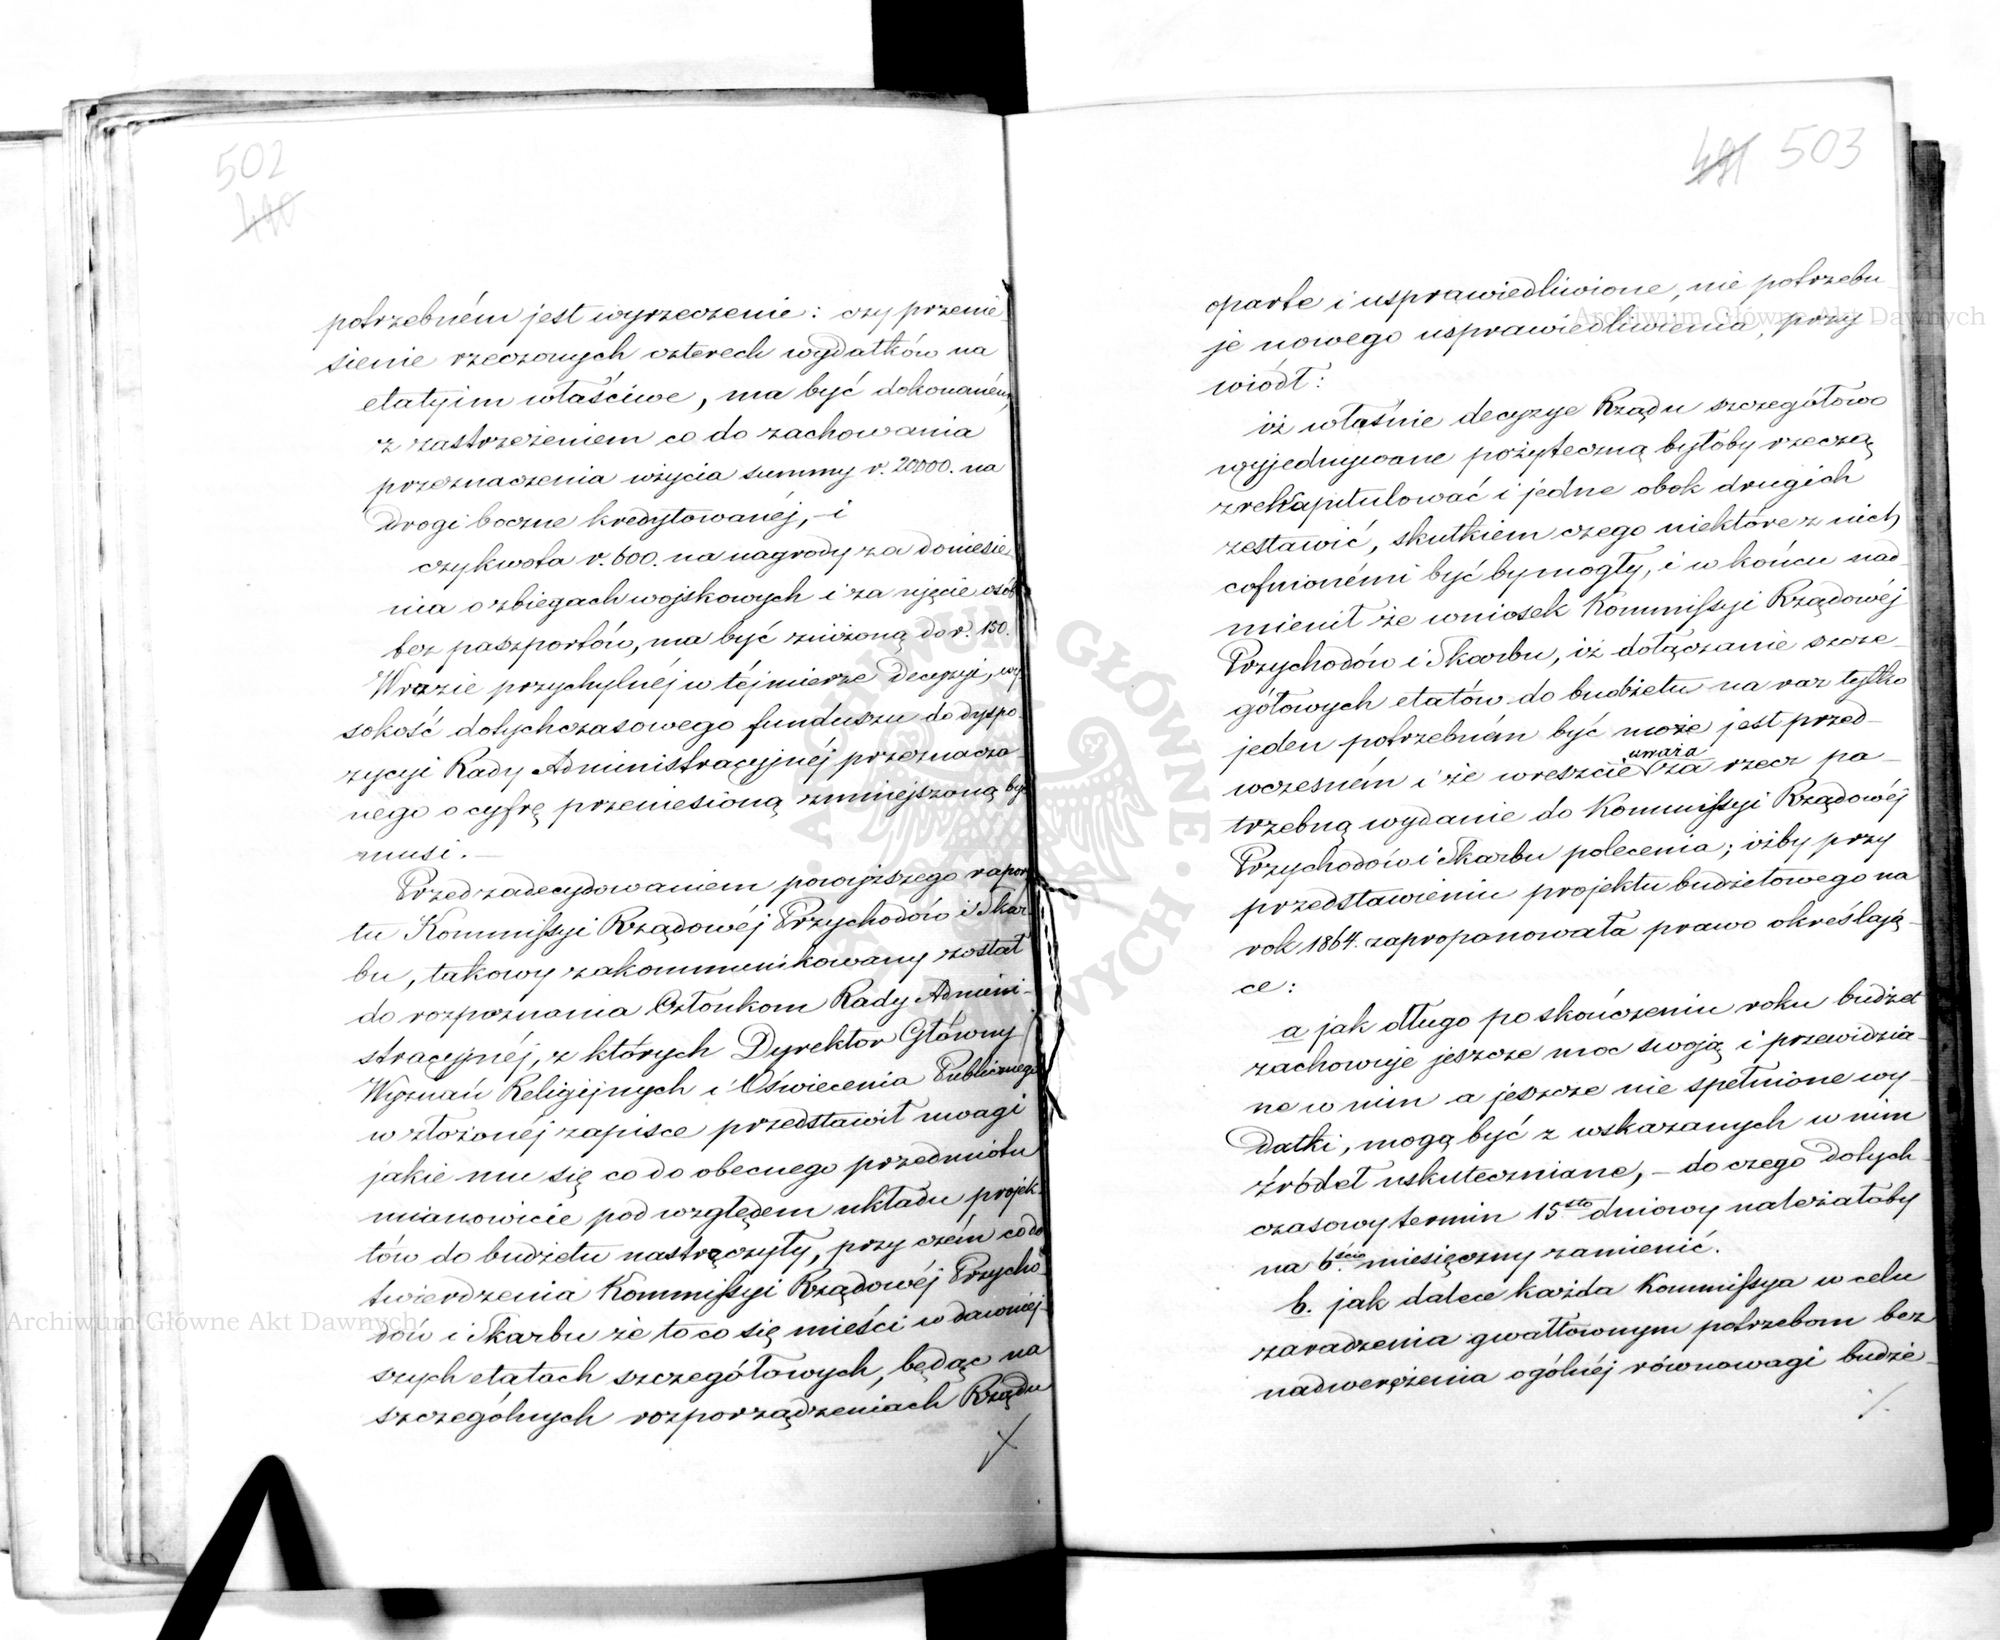 502
490
potrzebném jest wyrzeczenie: czy przenie-
sienie rzeczonych czterech wydatków na
etaty im właściwe, ma być dokonaném,
z zastrzeżeniem co do zachowania
przeznaczenia użycia summy r. 20000. na
drogi boczne kredytowanéj, – i
czy kwota r. 600. na nagrody za doniesie
nia o zbiegach wojskowych i za ujęcie osób
bez paszportów, ma być zniżoną do r. 150.
W razie przychylnéj w téj mierze decyzyi, wy
sokość dotychczasowego funduszu do dyspo-
zycyi Rady Administracyjnéj przeznaczo-
nego o cyfrę przeniesioną zmniejszoną być
musi. –
Przed zadecydowaniem powyższego rapor
tu Kommissyi Rządowéj Przychodów i Skar-
bu, takowy zakommunikowany został
do rozpoznania Członkom Rady Admini-
stracyjnéj, z których Dyrektor Główny
Wyznań Religijnych i Oświecenia Publicznego
w złożonéj zapisce przedstawił uwagi
jakie mu się co do obecnego przedmiotu
mianowicie pod względem układu projek-
tów do budżetu nastręczyły, przy czém co do
twierdzenia Kommissyi Rządowéj Przycho-
dów i Skarbu że to co się mieści w dawniej-
szych etatach szczegółowych, będąc na
szczególnych rozporządzeniach Rządu
491 503
oparte i usprawiedliwione, nie potrzebu
je nowego usprawiedliwienia, przy
wiódł:
iż właśnie decyzye Rządu szczegółowo
wyjednywane pożyteczną byłoby rzeczą
zrekapitulować i jedne obok drugich
zestawić, skutkiem czego niektóre z nich
cofnionémi być by mogły, i w końcu nad-
mienił że wniosek Kommissyi Rządowéj
Przychodów i Skarbu, iż dołączanie szcze-
gółowych etatów do budżetu na raz tylko
jeden potrzebném być może jest przed-
uważa
wczesném i że wreszcie za rzecz po-
trzebną wydanie do Kommissyi Rządowéj
Przychodów i Skarbu polecenia; iżby przy
przedstawieniu projektu budżetowego na
rok 1864. zaproponowała prawo określają-
ce:
a jak długo po skończeniu roku budżet
zachowuje jeszcze moc swoją i przewidzia-
ne w nim a jeszcze nie spełnione wy-
datki, mogą być z wskazanych w nim
źródeł uskuteczniane, – do czego dotych-
czasowy termin 15sto dniowy należałoby
na 6ścio miesięczny zamienić.
b. jak dalece każda Kommissya w celu
zaradzenia gwałtownym potrzebom bez
nadwerężenia ogólnéj równowagi budże-
./.
Archiwum Główne Akt Dawnych
Archiwum Główne Akt Dawnych